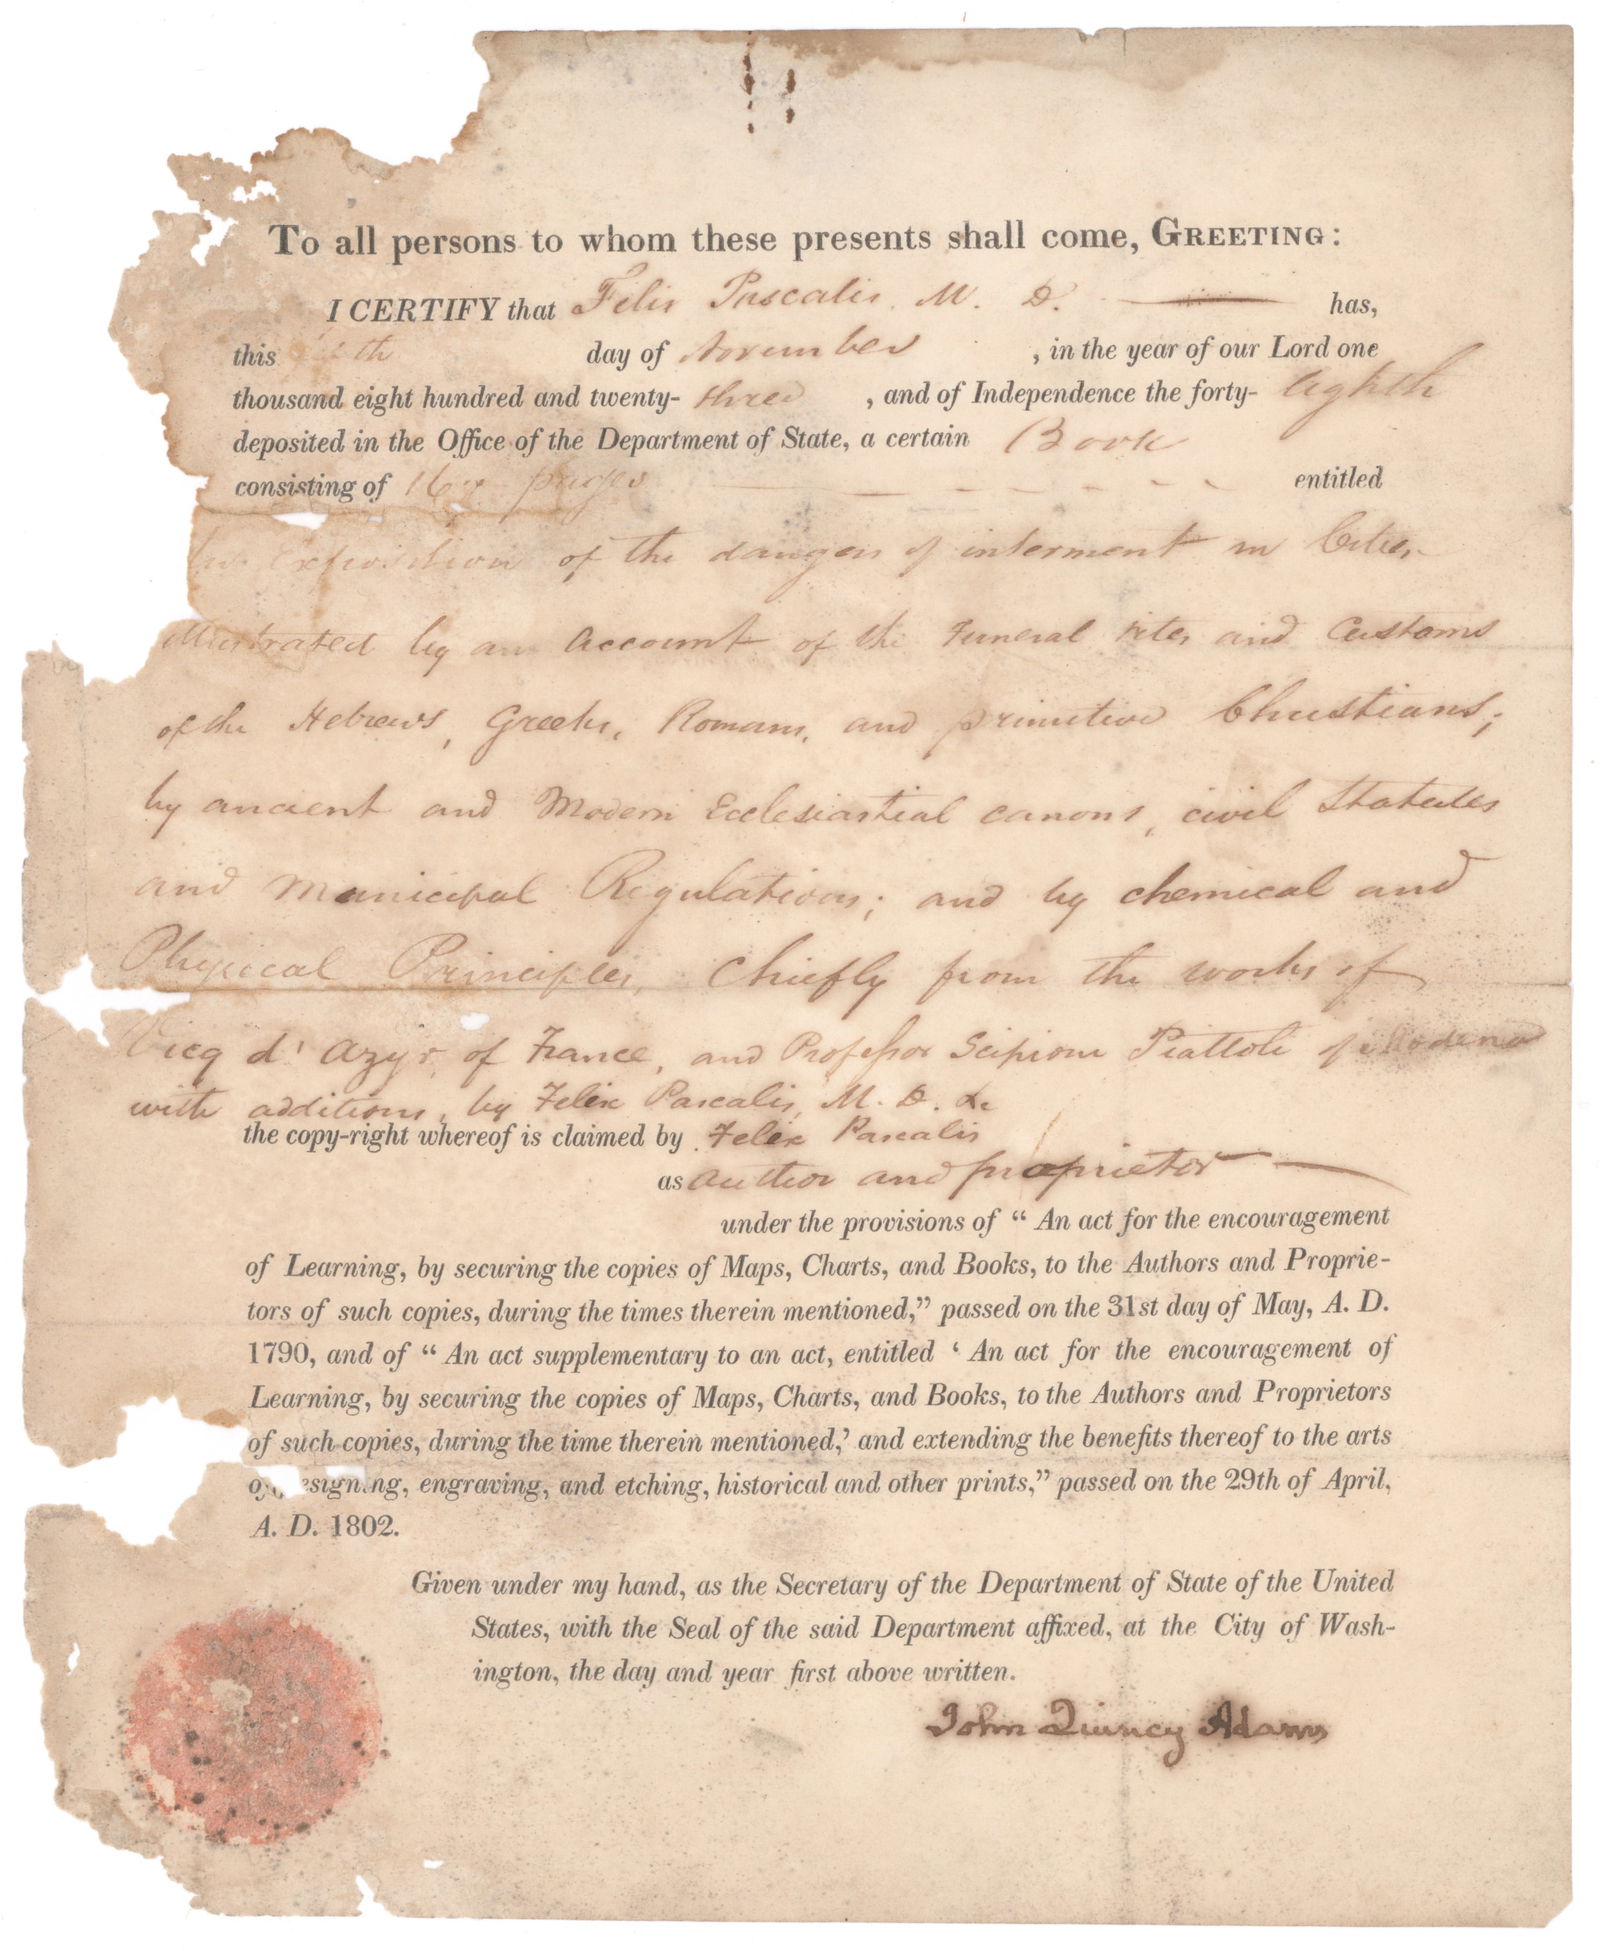 To all persons to whom these presents shall come, GREETING:
I CERTIFY that Felix Pascalis, M. D. has,
this day of November , in the year of our Lord one
thousand eight hundred and twenty- three , and of Independence the forty- eighth
deposited in the Office of the Department of State, a certain Book
consisting of pages entitled
An Exposition of the dangers of interment in Cities,
illustrated by an Account of the Funeral rites and Customs
of the Hebrews, Greeks, Romans, and primitive Christians;
by ancient and Modern Ecclesiastical canons, civil Statutes
and Municipal Regulations; and by chemical and
Physical Principles, Chiefly from the works of
Vicq d'Azyr, of France, and Professor Scipione Piattoli of Modena
with additions, by Felix Pascalis, M. D. &c
the copy-right whereof is claimed by Felix Pascalis
as author and proprietor
under the provisions of “ An act for the encouragement
of Learning, by securing the copies of Maps, Charts, and Books, to the Authors and Proprie-
tors of such copies, during the times therein mentioned,” passed on the 31st day of May, A. D.
1790, and of “ An act supplementary to an act, entitled ‘ An act for the encouragement of
Learning, by securing the copies of Maps, Charts, and Books, to the Authors and Proprietors
of such copies, during the time therein mentioned,’ and extending the benefits thereof to the arts
of designing, engraving, and etching, historical and other prints,” passed on the 29th of April,
A. D. 1802.
Given under my hand, as the Secretary of the Department of State of the United
States, with the Seal of the said Department affixed, at the City of Wash-
ington, the day and year first above written.
John Quincy Adams